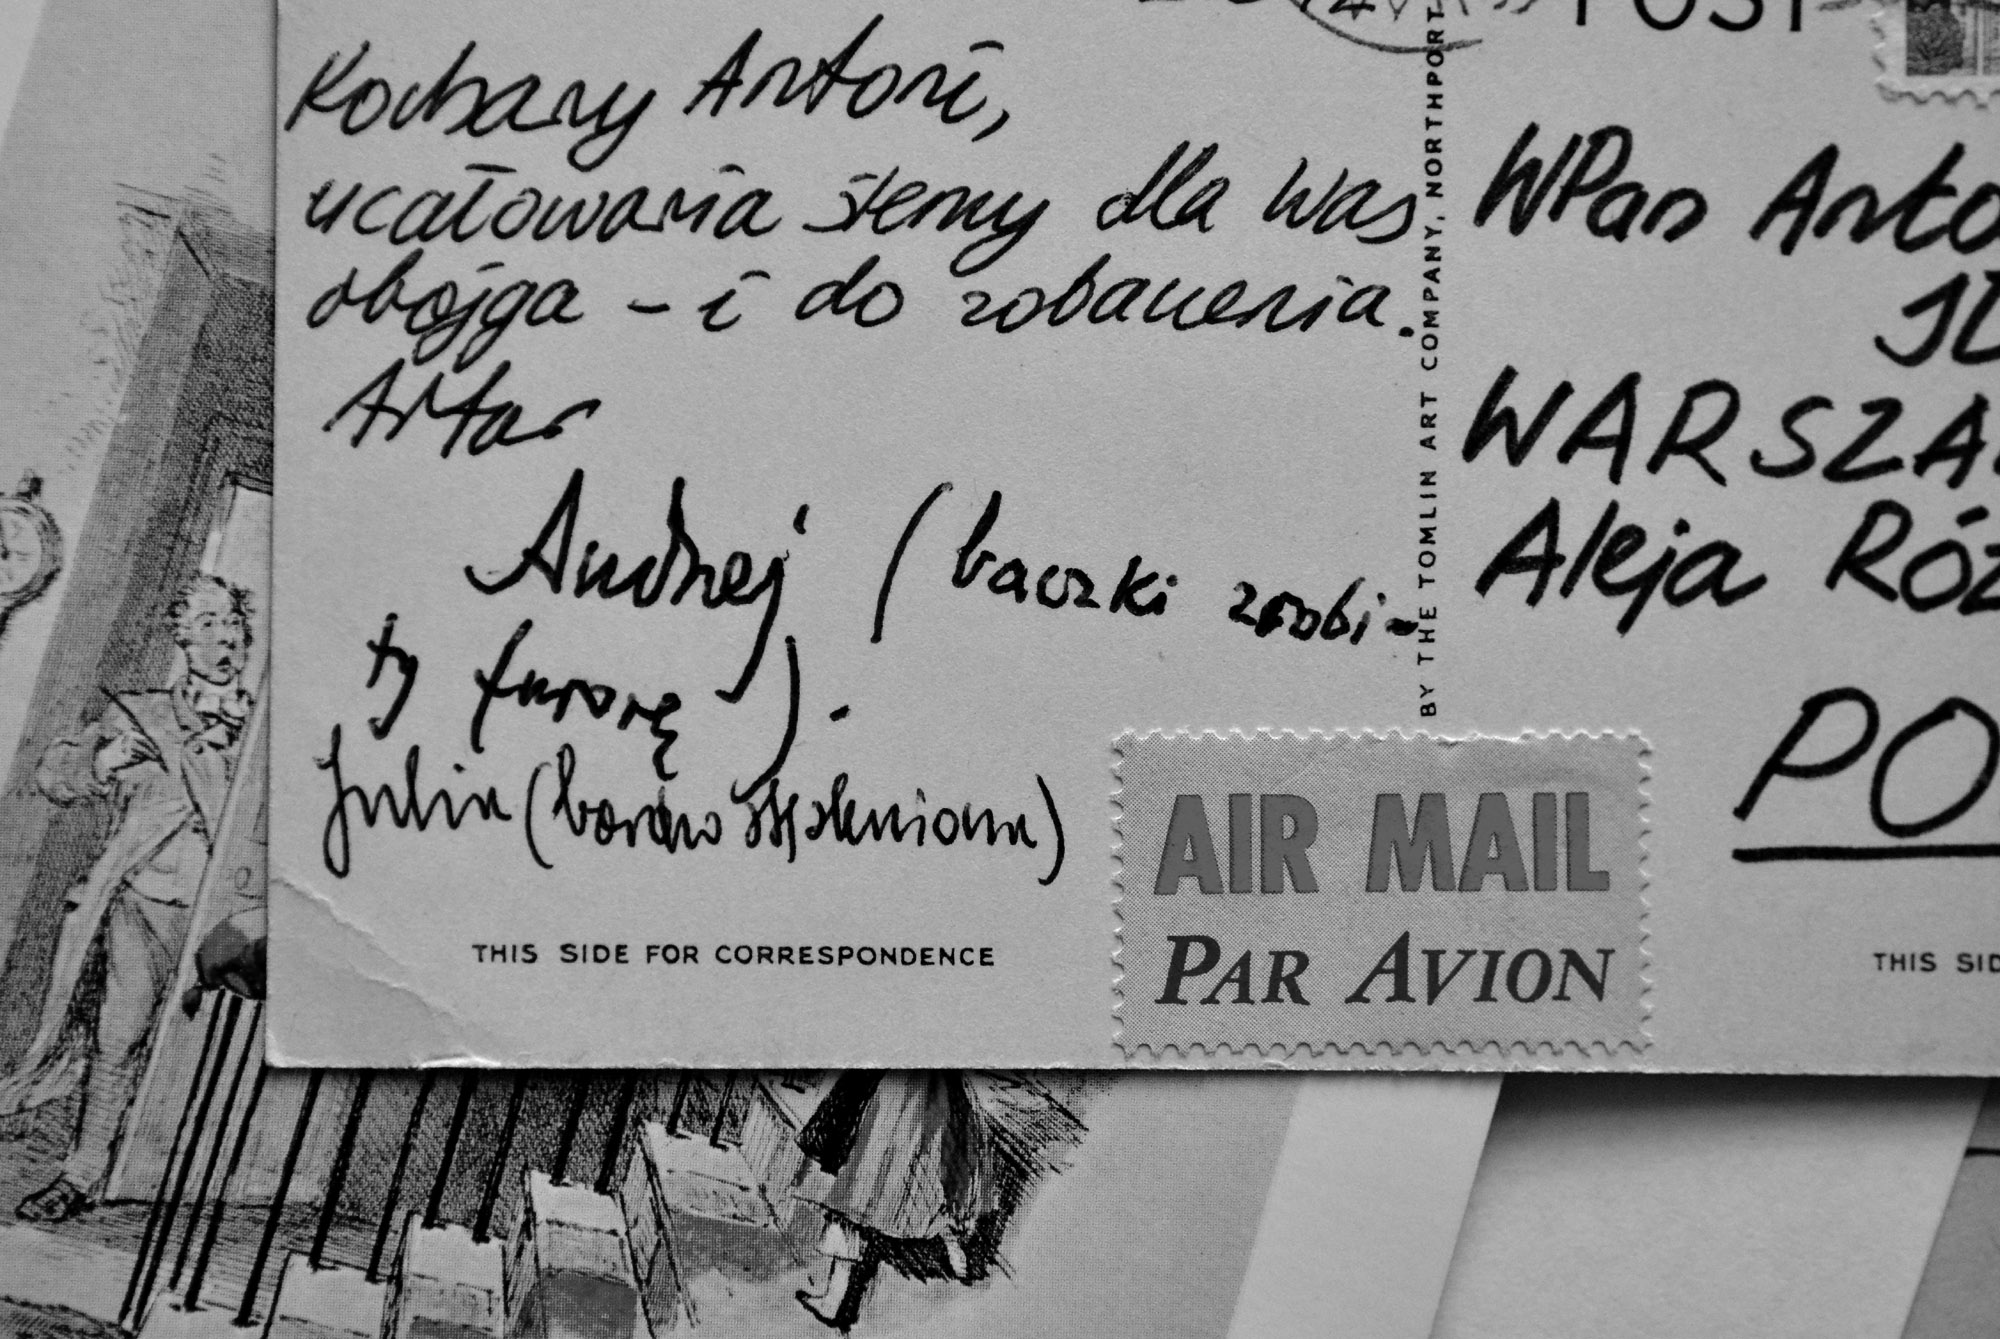 POST
Kochany Antoni,
ucałowania ślemy dla Was
obojga – i do zobaczenia.
Artur
Andrzej (baczki zrobi-
ły furorę).
Julia (bardzo stęskniona)
THIS SIDE FOR CORRESPONDENCE
BY THE TOMLIN ART COMPANY, NORTHPORT
WPan Anto
WARSZA
Aleja Róż
PO
AIR MAIL
PAR AVION
THIS SID